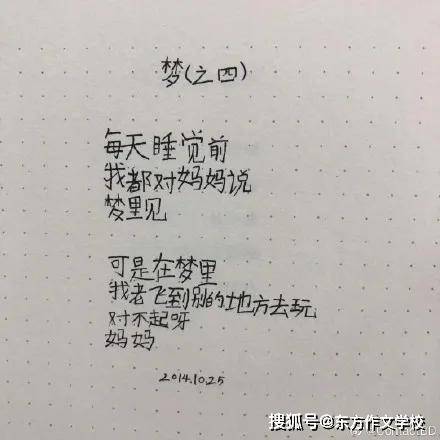 梦(之四)
每天睡觉前
我都对妈妈说
梦里见
可是在梦里
我老飞到别的地方去玩
对不起呀
妈妈
2014.10.25
搜狐号@东方作文学校